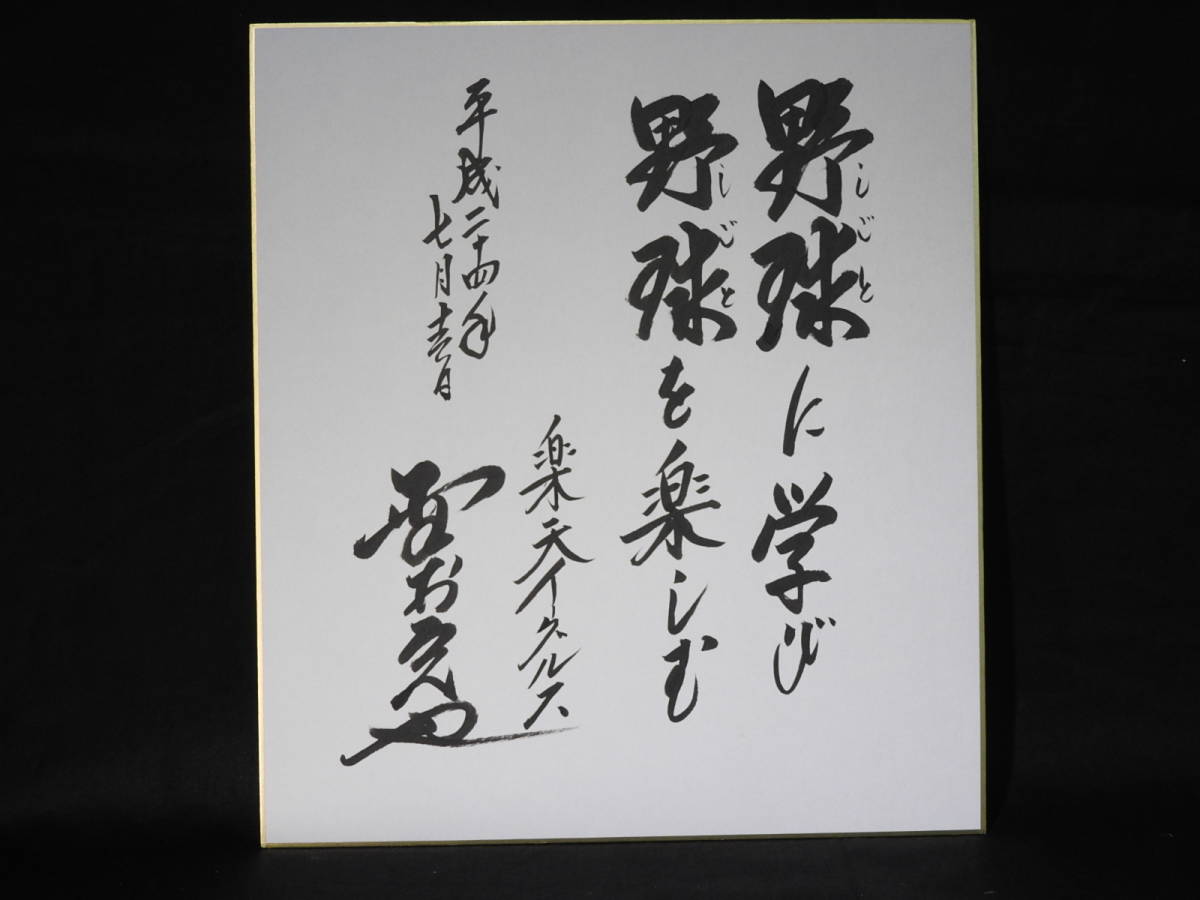 野球に学び
しごと
野球を楽しむ
しごと
平成二十四年
七月
楽天イーグルス